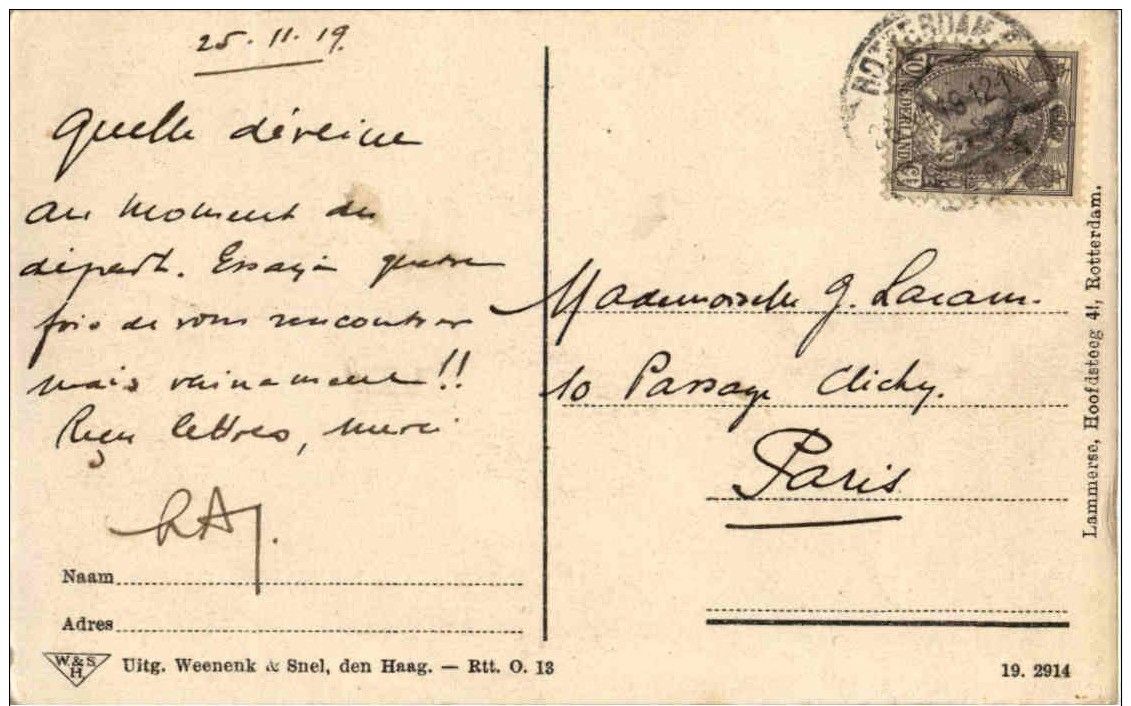 25.11.19.
Quelle déveine
au moment du
départ. Essayé quatre
fois de vous rencontrer
mais vainement!!
Reçu lettres, merci
Naam
Adres
W&S
H
Uitg. Weenenk & Snel, den Haag. — Rtt. O. 13
ROTTERDAM
NEDERLAND
Mademoiselle G. Lacam.
10 Passage Clichy.
Paris
Lammerse, Hoofdsteeg 41, Rotterdam.
19. 2914